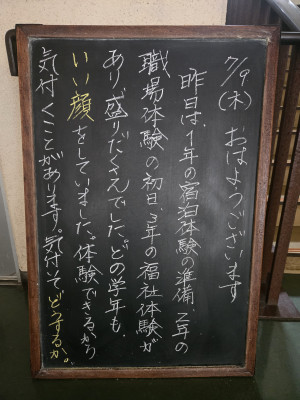 7/9(木) おはようございます
昨日は、1年の宿泊体験の準備、2年の
職場体験の初日、3年の福祉体験が
あり、盛りだくさんでした。どの学年も、
いい顔をしていました。体験できるから
気付くことがあります。気付いて、どうするか。